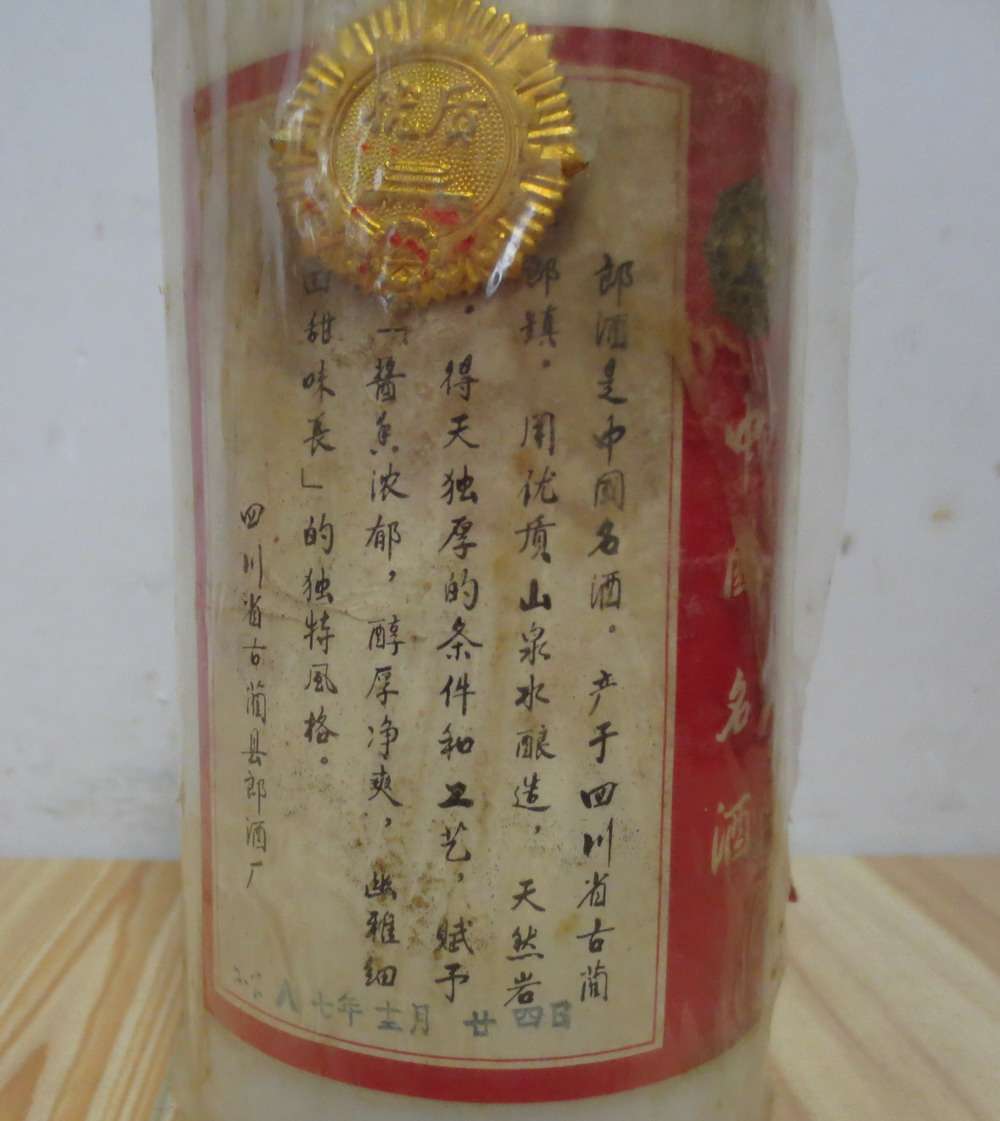 优质
郎酒是中国名酒。产于四川省古蔺
郎镇。用优质山泉水酿造，天然岩
得天独厚的条件和工艺，赋予
「酱香浓郁，醇厚净爽，幽雅细
回甜味長」的独特風格。
四川省古蔺县郎酒厂
八七年十二月廿四日
中国名酒